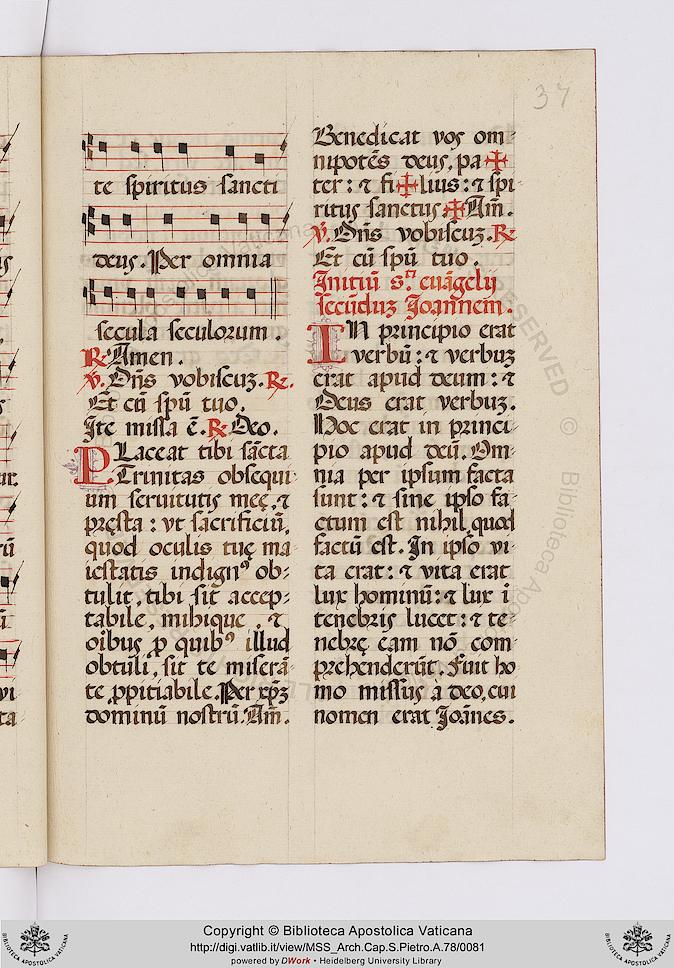 37
te spiritus sancti
deus. Per omnia
secula seculorum.
℟ Amen.
℣. Dn̄s vobiscuꝫ. ℟.
Et cū spū tuo.
Ite missa ē. ℟ Deo.
PLaceat tibi sācta
Trinitas obsequi
um seruitutis meę, ⁊
pręsta: vt sacrificiū,
quod oculis tuę ma
iestatis indignꝰ ob-
tulit, tibi sit accep-
tabile, mihique, ⁊
oībus ꝓ quibꝰ illud
obtuli, sit te miserā-
te ꝓpitiabile. Per xp̄ꝫ
dominū nostrū. Am̄.
Benedicat vos om-
nipotēs deus, pa✠
ter: ⁊ fi✠lius: ⁊ spi-
ritus sanctus ✠ Am̄.
℣. Dn̄s vobiscuꝫ. ℟
Et cū spū tuo.
Initiū s. euāgelij
secūduꝫ Joannem.
IN principio erat
verbū: ⁊ verbuꝫ
erat apud deum: ⁊
Deus erat verbuꝫ.
Hoc erat in princi
pio apud deū. Om-
nia per ipsum facta
sunt: ⁊ sine ipso fa-
ctum est nihil, quod
factū est. In ipso vi-
ta erat: ⁊ vita erat
lux hominū: ⁊ lux ī
tenebris lucet: ⁊ te-
nebrę eam nō com-
prehenderūt. Fuit ho
mo missus a deo, cui
nomen erat Joānes.
Copyright © Biblioteca Apostolica Vaticana
http://digi.vatlib.it/view/MSS_Arch.Cap.S.Pietro.A.78/0081
powered by DWork • Heidelberg University Library
BIBLIOTECA APOSTOLICA VATICANA
BIBLIOTECA APOSTOLICA VATICANA